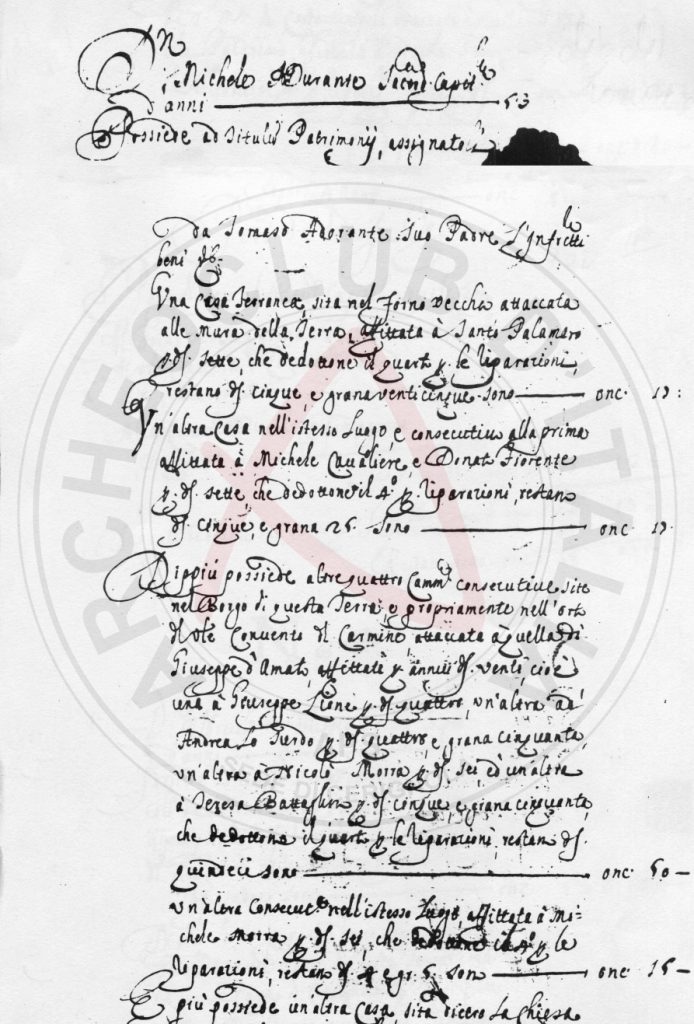 Dn
D. Michele Adurante Sacerd.te Capit.le
d'anni 53
Possiede ad Titulũ Patrimonij, assignatoli
da Tomaso Adorante suo Padre l'infr(etti)
beni
Una Casa Terranea, sita nel forno vecchio attaccata
alle mura della Terra, affittata à Santo Palamaro
p. d. sette, che dedottone il quarto p. le riparazioni,
restano d. cinque, e grana venticinque sono onc. 17:
Un'altra Casa nell'istesso Luogo, e consecutiva alla prima
affittata à Michele Cavaliere, e Donato Fiorente
p. d. sette, che dedottone il 4º p. riparazioni, restano
d. cinque, e grana 25. sono onc. 17.
Dippiú possiede altre quattro Camm.e consecutive site
nel Borgo di questa Terra, e propriamente nell'orto
d. Ven.le Convento d. Carmine attaccata à quella di
Giuseppe d'Amato, affittate p. annui d. venti, cioè
una à Giuseppe Lione p. d. quattro, un'altra ad
Andrea Lo Turdo p. d. quattro, e grana cinquanta,
un'altra à Nicolò Morra p. d. sei, ed un'altra
à Teresa Battaglin p. d. cinque, e grana cinquanta,
che dedottone il quarto p. le riparazioni, restano d.
quindeci sono onc. 50
un'altra consecut.a nell'istesso Luogo, affittata à Mi=
chele Morra p. d. sei, che dedottone il 4º p. le
riparazioni, restano d. 4 e gr. 5. sono onc. 15
E più possiede un'altra casa, sita dietro la Chiesa
ARCHEOCLUB D'ITALIA
SEDE DI